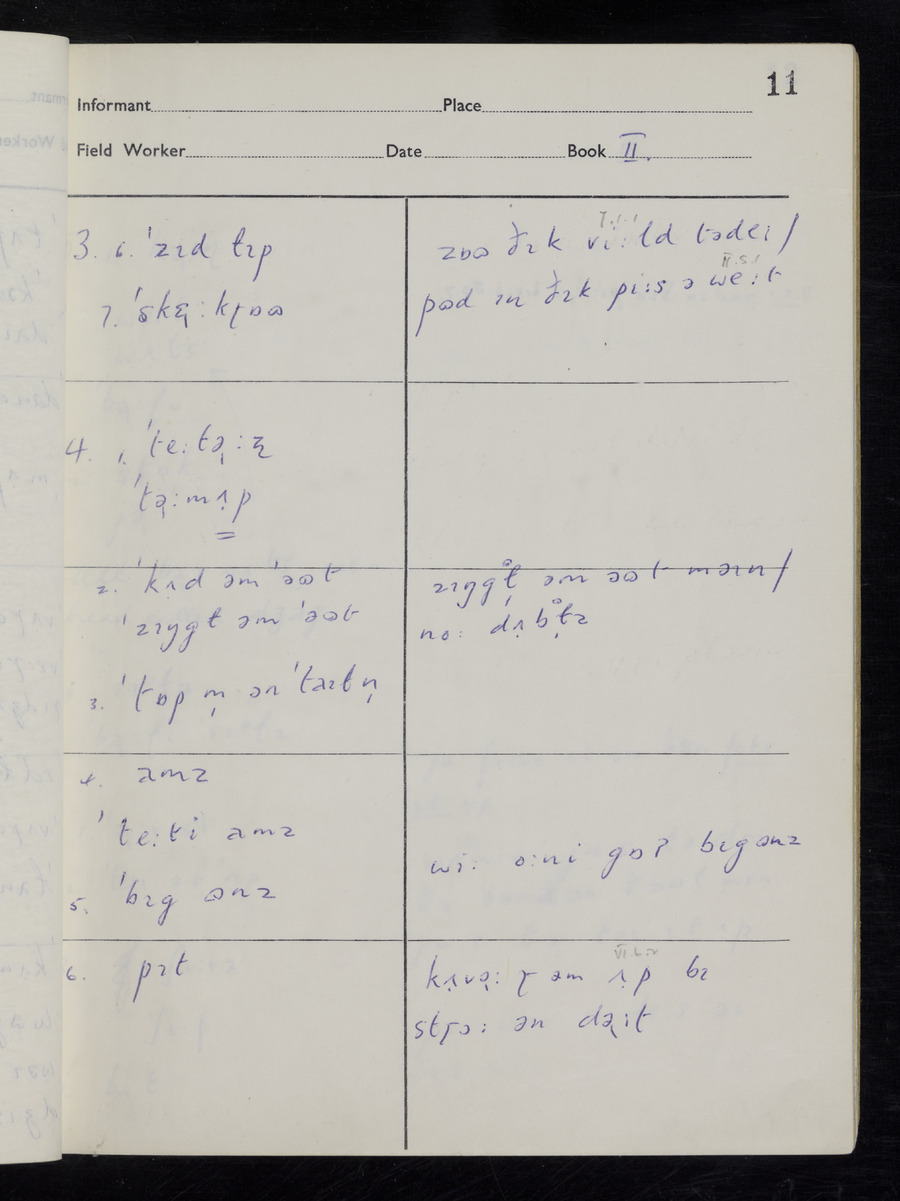 11
Informant Place
Field Worker Date Book II.
3. 6. ˈzɪd tɪp
7. ˈskɛ̣ːkɽɒʊ
zɒʊ ðɪk viːld tədeɪ /
pʊd ɪn ðɪk piːs ə weːt
4. 1. ˈteːtə̣ːz̢
ˈtə̣ːmʌ̣p
2. ˈkʌ̣d əm ˈəʊt
ˈzɪŋgɫ əm ˈəʊt
3. ˈtɒp m̩ ən ˈtaɪt n̩
zɪŋgɫ̩ əm əʊt məɪn /
noː dʌ̣bɫ̩z
4. amz
ˈteːti amz
5. ˈbɪg ənz
wiː oːni gɒʔ bɪg ənz
6. pɪt
VI.6.2
kʌ̣və̣ːɽ əm ʌ̣p bɪ
stɽɔː ən də̣ːt